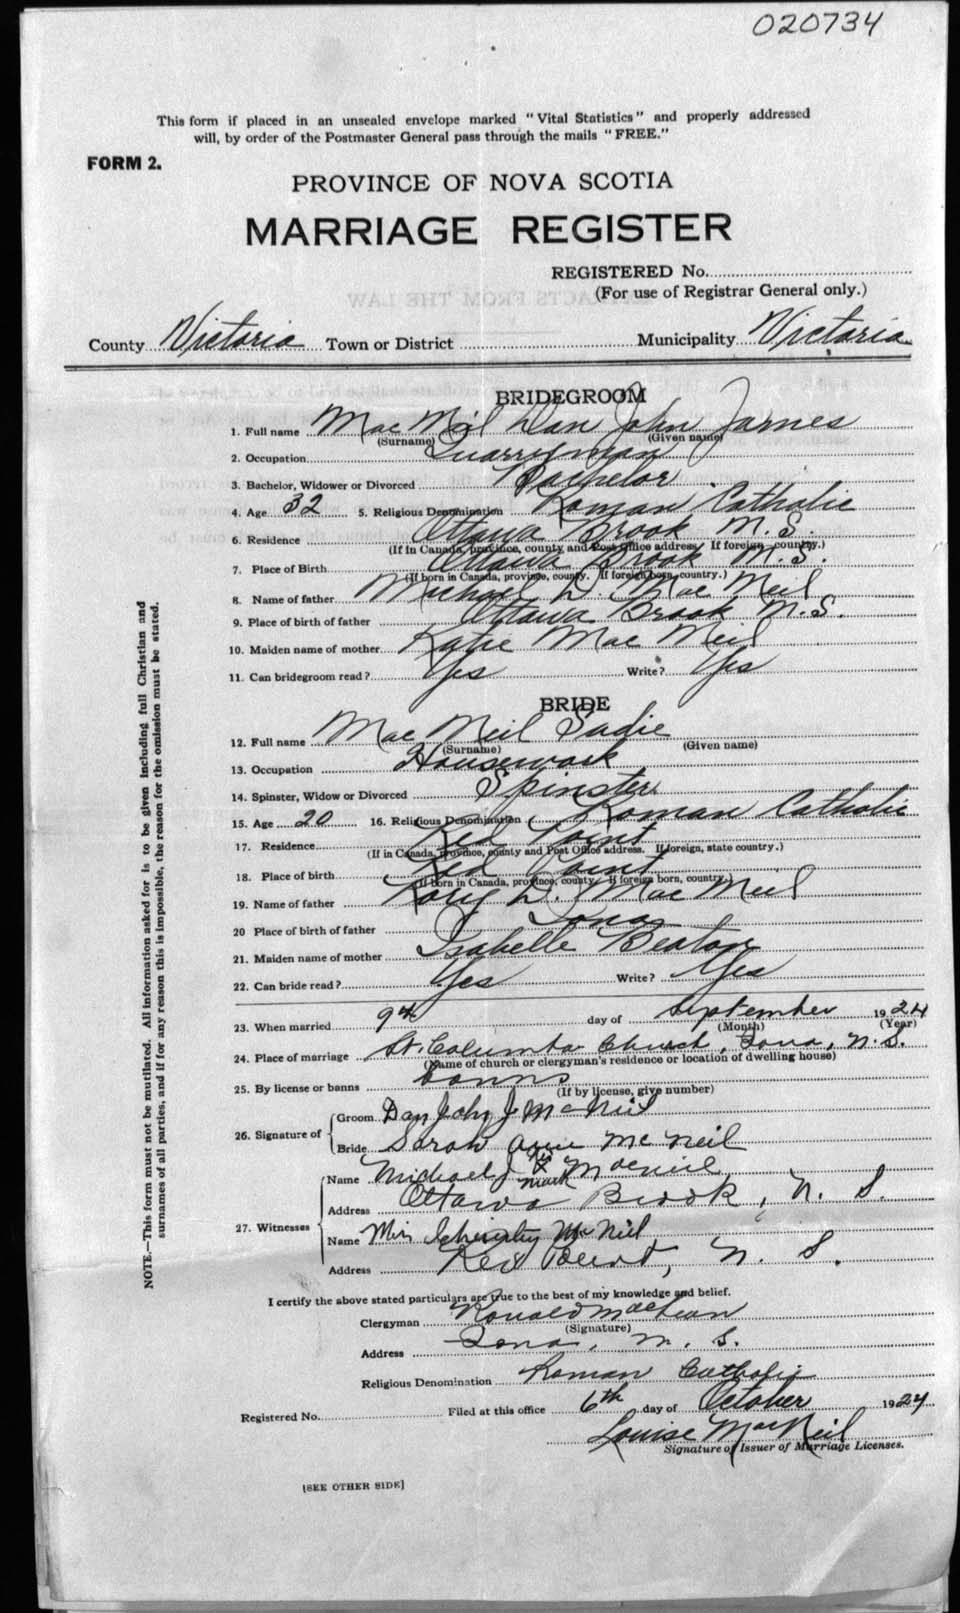 020734
This form if placed in an unsealed envelope marked "Vital Statistics" and properly addressed
will, by order of the Postmaster General pass through the mails "FREE."
FORM 2.
PROVINCE OF NOVA SCOTIA
MARRIAGE REGISTER
REGISTERED No.
(For use of Registrar General only.)
County Victoria Town or District Municipality Victoria
BRIDEGROOM
1. Full name Mac Neil Dan John James
(Surname) (Given name)
2. Occupation Quarryman
3. Bachelor, Widower or Divorced Bachelor
4. Age 32 5. Religious Denomination Roman Catholic
6. Residence Ottawa Brook N.S.
(If in Canada, province, county and Post Office address. If foreign, country.)
7. Place of Birth Ottawa Brook N.S.
(If born in Canada, province, county. If foreign born, country.)
8. Name of father Michael D. Mac Neil
9. Place of birth of father Ottawa Brook N.S.
10. Maiden name of mother Katie Mac Neil
11. Can bridegroom read? Yes Write? Yes
BRIDE
12. Full name Mac Neil Sadie
(Surname) (Given name)
13. Occupation Housework
14. Spinster, Widow or Divorced Spinster
15. Age 20 16. Religious Denomination Roman Catholic
17. Residence Red Point
(If in Canada, province, county and Post Office address. If foreign, state country.)
18. Place of birth Red Point
(If born in Canada, province, county. If foreign born, country.)
19. Name of father Rory D. Mac Neil
20 Place of birth of father Iona
21. Maiden name of mother Isabelle Beaton
22. Can bride read? Yes Write? Yes
23. When married 9th day of September 1924
(Month) (Year)
24. Place of marriage St. Columba Church, Iona, N.S.
(Name of church or clergyman's residence or location of dwelling house)
25. By license or banns banns
(If by license, give number)
26. Signature of
Groom Dan John J McNeil
Bride Sarah Ann McNeil
27. Witnesses
Name Michael J his X mark McNeil
Address Ottawa Brook, N. S.
Name Miss McNeil
Address Red Point, N. S.
I certify the above stated particulars are true to the best of my knowledge and belief.
Clergyman Ronald MacLean
(Signature)
Address Iona, N. S.
Religious Denomination Roman Catholic
Registered No. Filed at this office 6th day of October 1924
Louise MacNeil
Signature of Issuer of Marriage Licenses.
[SEE OTHER SIDE]
NOTE.—This form must not be mutilated. All information asked for is to be given including full Christian and
surnames of all parties, and if for any reason this is impossible, the reason for the omission must be stated.